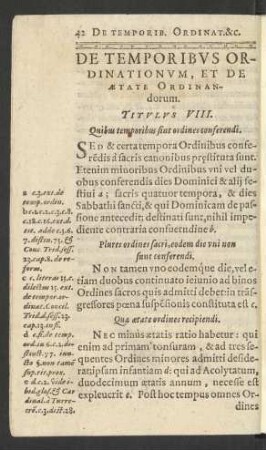 42 DE TEMPORIB. ORDINAT.&c.
DE TEMPORIBVS OR-
DINATIONVM, ET DE
ÆTATE ORDINAN-
dorum.
TITVLVS VIII.
Quibus temporibus sint ordines conferendi.
SED & certa tempora Ordinibus confe-
rēdis á sacris canonibus pręstituta sunt.
Etenim minoribus Ordinibus vni vel duo-
bus conferendis dies Dominici & alij fe-
stiui a; sacris quatuor tempora, & dies
Sabbathi sancti, & qui Dominicam de pas-
sione antecedit; destinati sunt, nihil impe-
diente contraria consuetudine b.
Plures ordines sacri, eodem die vni non
sunt conferendi.
NON tamen vno eodemque die, vel e-
tiam duobus continuato ieiunio ad binos
Ordines sacros quis admitti debet: in trās-
gressores pœna suspēsionis constituta est c.
Qua ætate ordines recipiendi.
NEC minùs ætatis ratio habetur: qui
enim ad primam tonsuram, & ad tres se-
quentes Ordines minores admitti deside-
rat ipsam infantiam d: qui ad Acolytatum,
duodecimum ætatis annum, necesse est
expleuerit e. Post hoc tempus omnes Or-
dines
a c.3. ext. de
temp. ordin.
ext. adde c.13.d.
7. distin. 75. &
Conc. Trid. sess.
23. cap. 8. de re-
form.